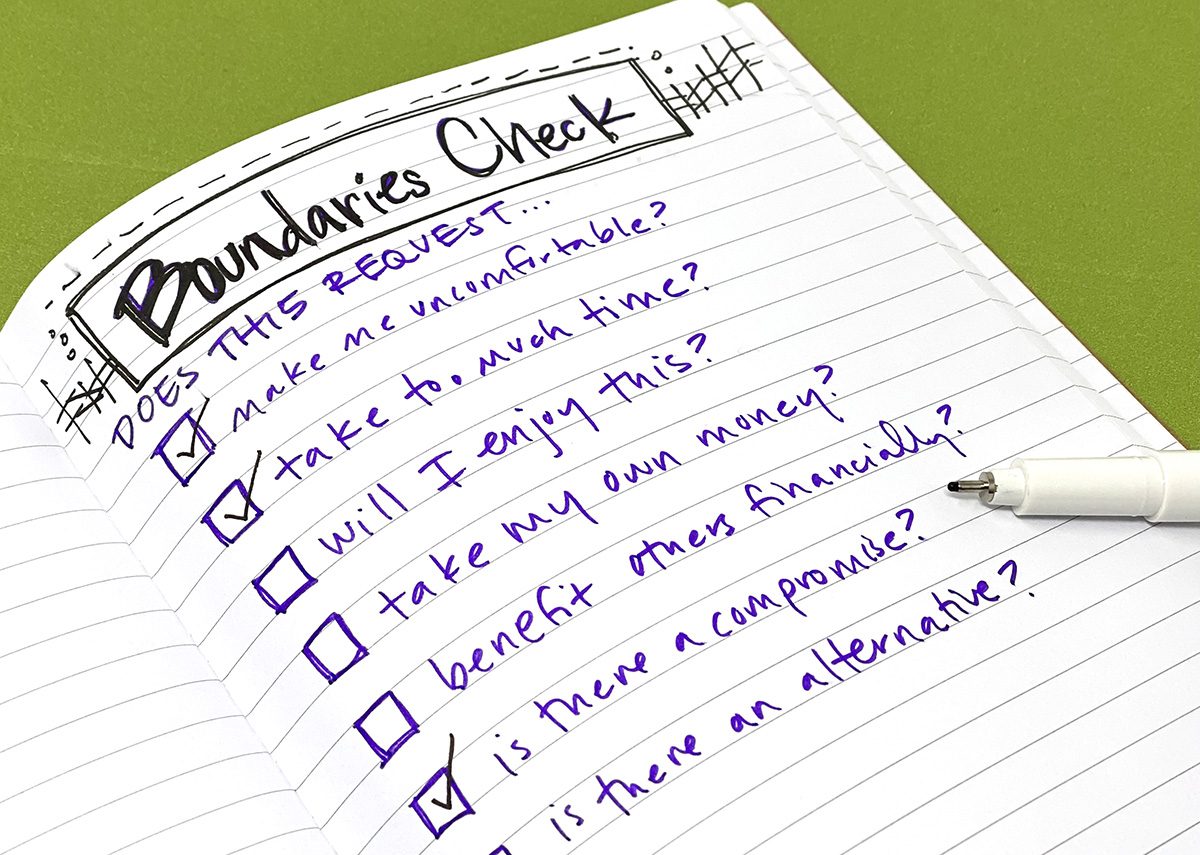 Boundaries Check
DOES THIS REQUEST...
make me uncomfirtable?
take too much time?
will I enjoy this?
take my own money?
benefit others financially?
is there a compromise?
is there an alternative?